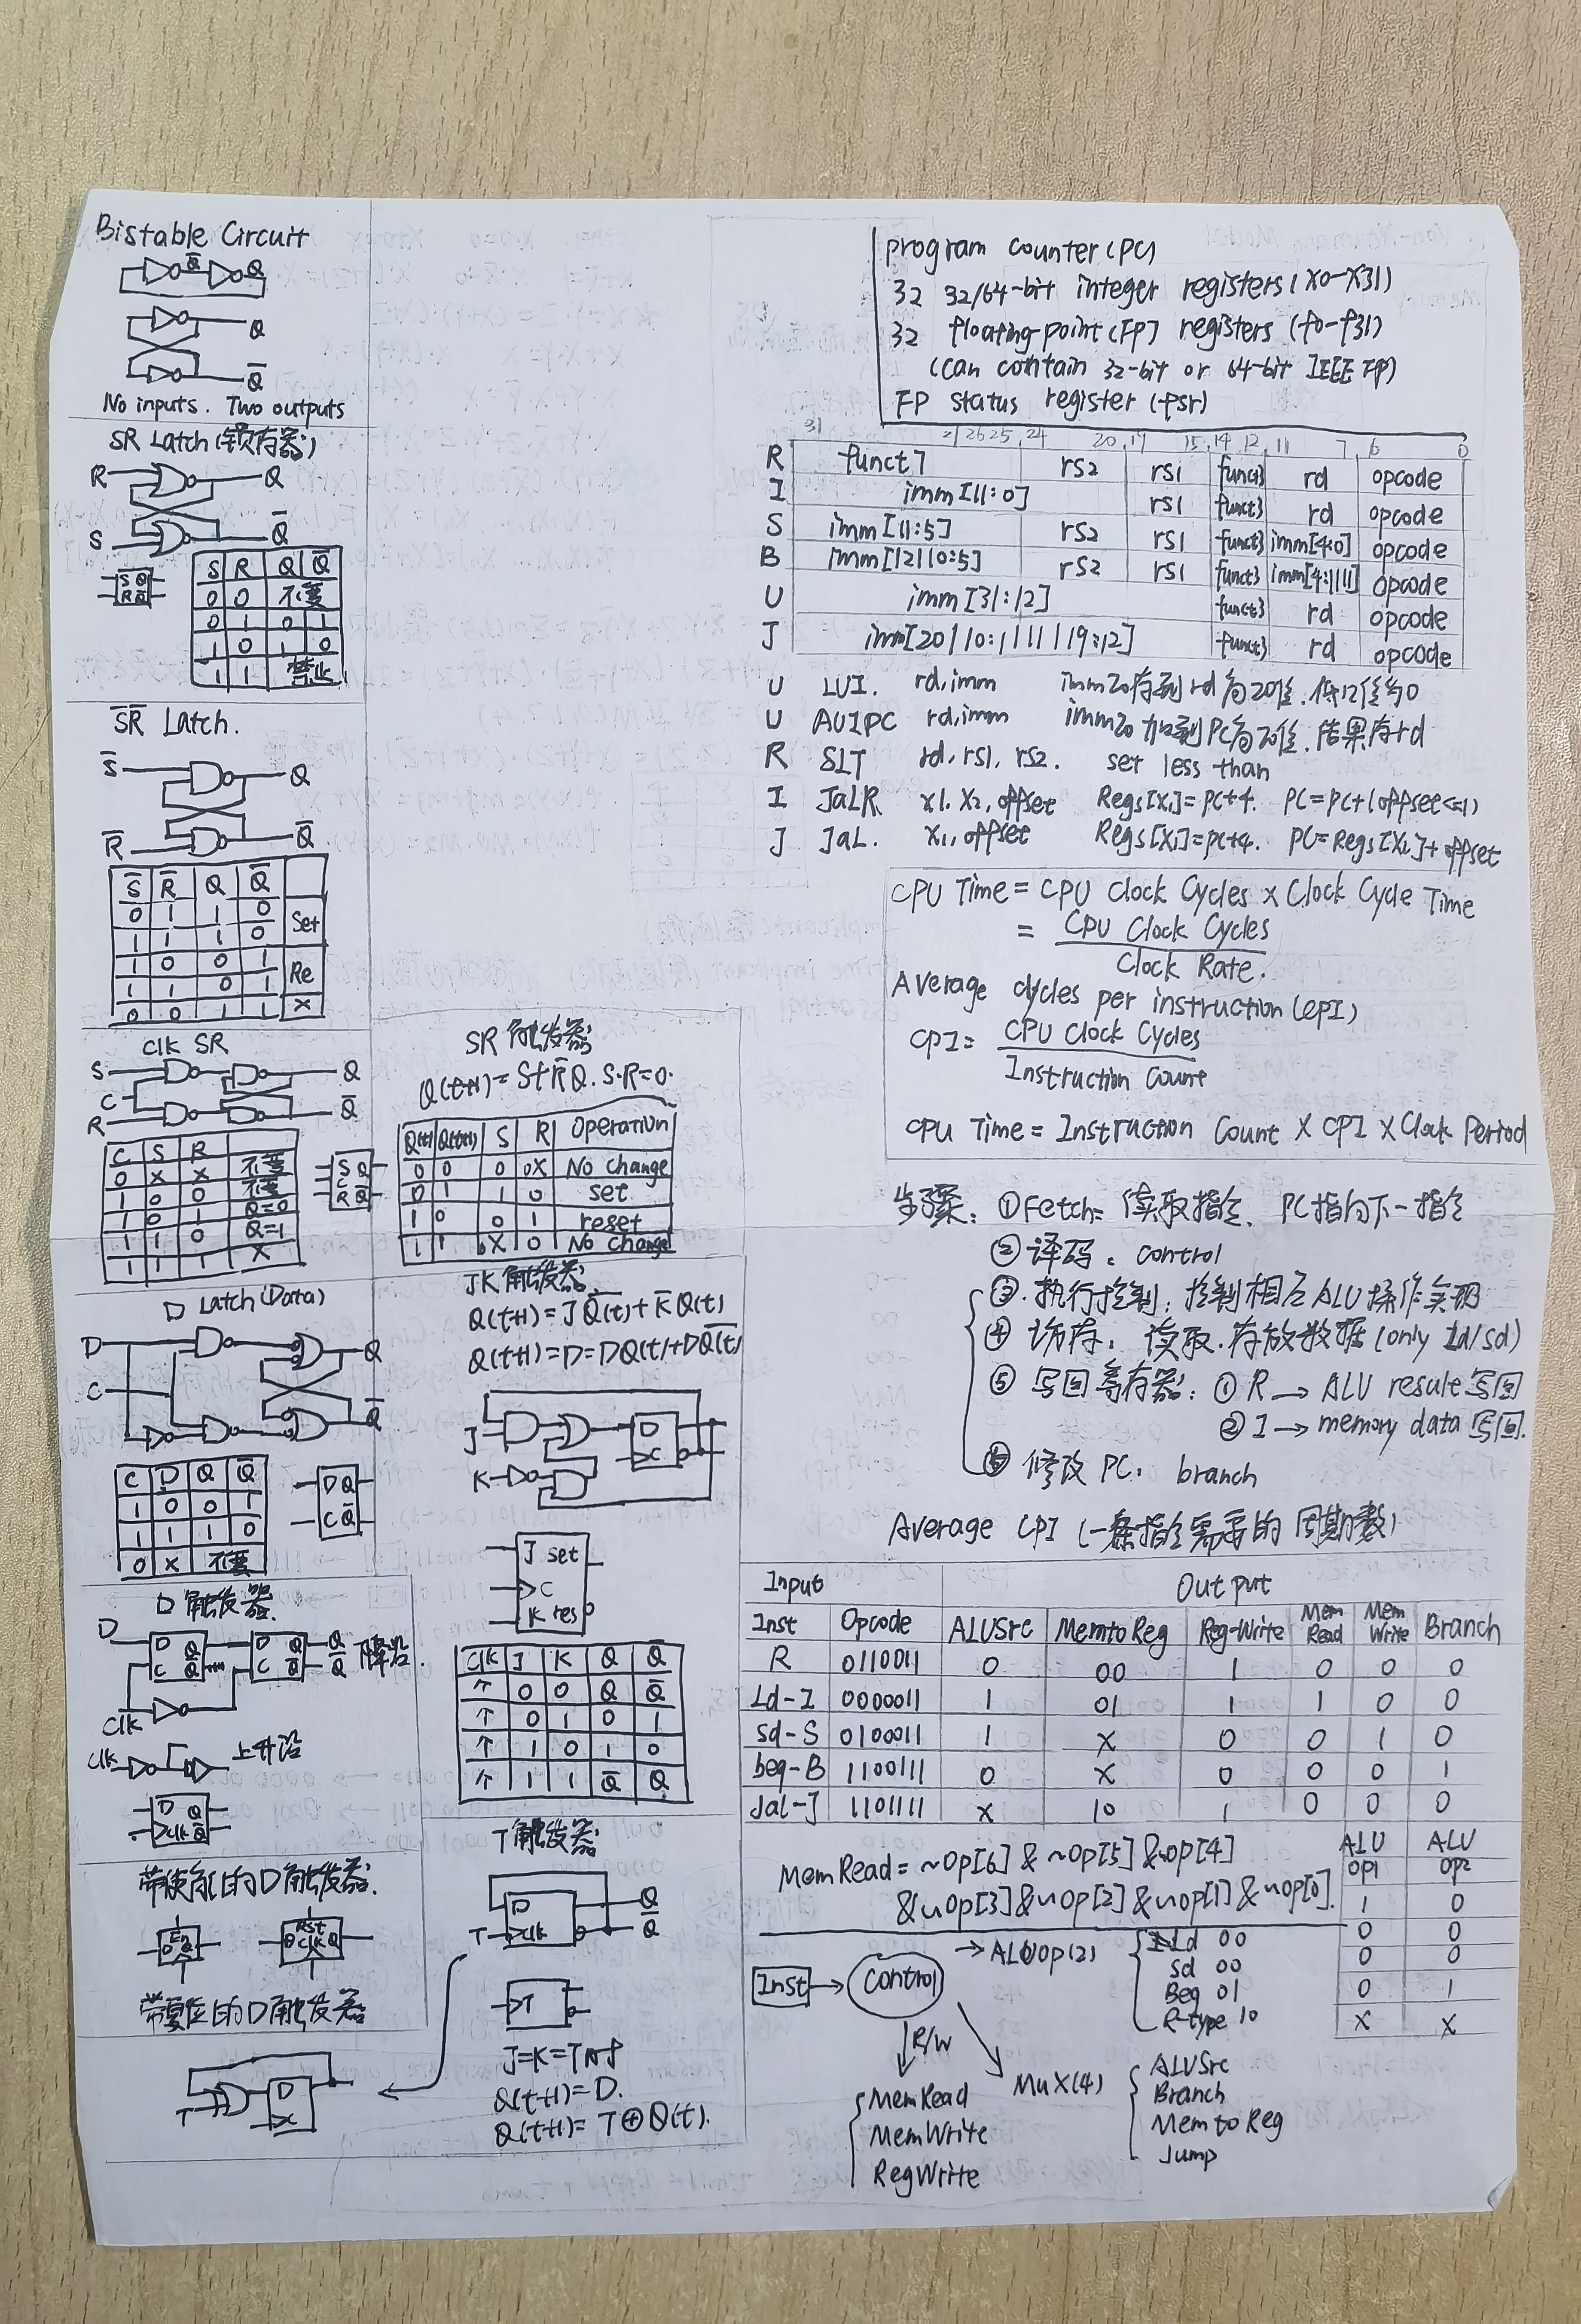 Bistable Circuit
Q̅ Q
Q
Q̅
No inputs. Two outputs
SR Latch(锁存器)
R Q
S Q̅
S Q
R Q̅
S R Q Q̅
0 0 不变
0 1 0 1
1 0 1 0
1 1 禁止
S̅R̅ Latch.
S̅ Q
R̅ Q̅
S̅ R̅ Q Q̅
0 1 1 0 Set
1 1 1 0
1 0 0 1 Re
1 1 0 1
0 0 1 1 X
Clk SR
S Q
C
R Q̅
C S R
0 X X 不变
1 0 0 不变
1 0 1 Q=0
1 1 0 Q=1
1 1 1 X
S Q
C
R Q̅
D Latch(Data)
D Q
C Q̅
C D Q Q̅
1 0 0 1
1 1 1 0
0 X 不变
D Q
C Q̅
D 触发器
D D Q D Q Q
C Q̅ C Q̅ Q̅ 降沿.
Clk
Clk 上升沿
D Q
Clk Q̅
带使能的D触发器.
En
D Q
Rst
D Clk Q
带复位的D触发器
T D
SR 触发器
Q(t+1)=S+R̅Q. S·R=0.
Q(t) Q(t+1) S R Operation
0 0 0 0X No change
0 1 1 0 set
1 0 0 1 reset
1 1 0X 0 No change
JK 触发器
Q(t+1)=JQ̅(t)+K̅Q(t)
Q(t+1)=D=DQ(t)+DQ̅(t)
J D
K C
J set
C
K res
Clk J K Q Q̅
↑ 0 0 Q Q̅
↑ 0 1 0 1
↑ 1 0 1 0
↑ 1 1 Q̅ Q
T触发器
D Q
T Clk Q̅
T
J=K=T时
Q(t+1)=D.
Q(t+1)=T⊕Q(t).
program counter(PC)
32 32/64-bit integer registers(x0-x31)
32 floating-point(FP) registers (f0-f31)
(can contain 32-bit or 64-bit IEEE FP)
FP status register (fsr)
31 26 25 24 20 19 15 14 12 11 7 6 0
R funct7 rs2 rs1 funct3 rd opcode
I imm[11:0] rs1 funct3 rd opcode
S imm[11:5] rs2 rs1 funct3 imm[4:0] opcode
B imm[12|10:5] rs2 rs1 funct3 imm[4:1|11] opcode
U imm[31:12] funct3 rd opcode
J imm[20|10:1|11|19:12] funct3 rd opcode
U LUI. rd,imm imm20存到rd高20位.低12位为0
U AUIPC rd,imm imm20加到PC高20位.结果存rd
R SLT rd,rs1,rs2. set less than
I JaLR x1.x2,offset Regs[x1]=pc+4. PC=PC+(offset<<1)
J JaL. x1,offset Regs[x1]=pc+4. PC=Regs[x2]+offset
CPU Time = CPU Clock Cycles × Clock Cycle Time
= CPU Clock Cycles
Clock Rate.
Average cycles per instruction(CPI)
CPI= CPU Clock Cycles
Instruction Count
CPU Time = Instruction Count × CPI × Clock Period
步骤: ①Fetch= 读取指令. PC指向下一指令
②译码: control
③.执行控制: 控制相应ALU操作实现
④ 访存: 读取.存放数据(only ld/sd)
⑤ 写回寄存器: ① R → ALU result写回
② I → memory data 写回.
⑥ 修改 PC. branch
Average CPI (一条指令需要的周期数)
Input Output
Inst Opcode ALUSrc MemtoReg Reg-Write Mem Read Mem Write Branch
R 0110011 0 00 1 0 0 0
Ld-I 0000011 1 01 1 1 0 0
sd-S 0100011 1 X 0 0 1 0
beq-B 1100111 0 X 0 0 0 1
Jal-J 1101111 X 10 1 0 0 0
MemRead= ~Op[6] & ~Op[5] &~op[4]
&~op[3]&~op[2]&~op[1]&~op[0].
ALU op1 ALU op2
1 0
0 0
0 0
0 1
X X
Inst Control → ALUop(2)
Ld 00
sd 00
Beq 01
R-type 10
R/W
MemRead
MemWrite
RegWrite
Mux(4)
ALUSrc
Branch
MemtoReg
Jump